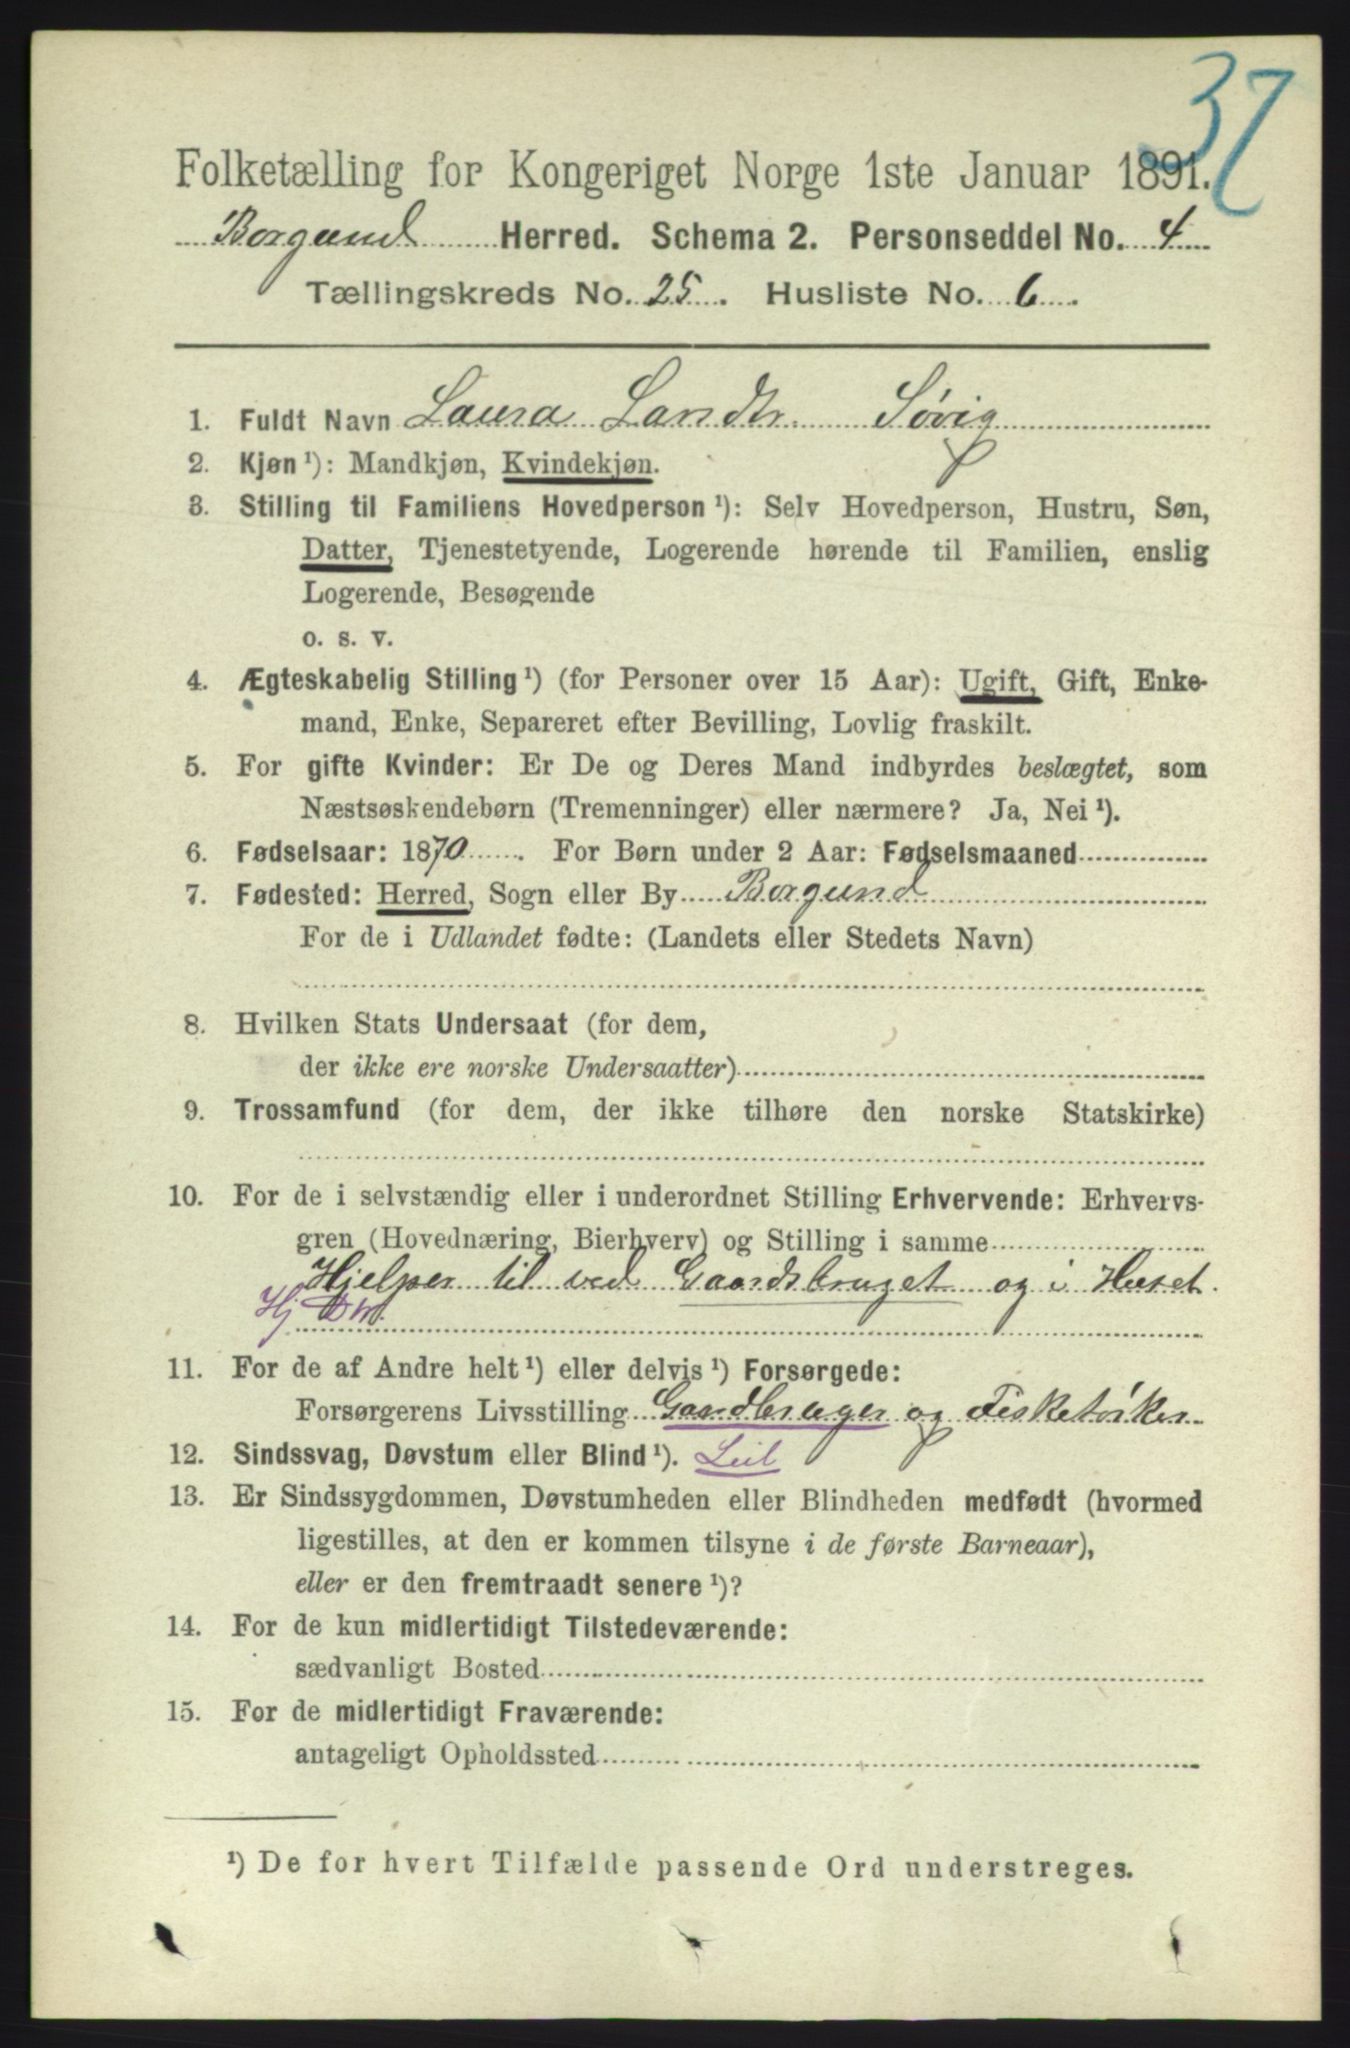 37
Folketælling for Kongeriget Norge 1ste Januar 1891.
Borgund Herred. Schema 2. Personseddel No. 4
Tællingskreds No. 25. Husliste No. 6.
1. Fuldt Navn Laura Larsdtr. Søvig
2. Kjøn ¹): Mandkjøn, Kvindekjøn.
3. Stilling til Familiens Hovedperson ¹): Selv Hovedperson, Hustru, Søn,
Datter, Tjenestetyende, Logerende hørende til Familien, enslig
Logerende, Besøgende
o. s. v.
4. Ægteskabelig Stilling ¹) (for Personer over 15 Aar): Ugift, Gift, Enke-
mand, Enke, Separeret efter Bevilling, Lovlig fraskilt.
5. For gifte Kvinder: Er De og Deres Mand indbyrdes beslægtet, som
Næstsøskendebørn (Tremenninger) eller nærmere? Ja, Nei ¹).
6. Fødselsaar: 1870. For Børn under 2 Aar: Fødselsmaaned
7. Fødested: Herred, Sogn eller By Borgund
For de i Udlandet fødte: (Landets eller Stedets Navn)
8. Hvilken Stats Undersaat (for dem,
der ikke ere norske Undersaatter)
9. Trossamfund (for dem, der ikke tilhøre den norske Statskirke)
10. For de i selvstændig eller i underordnet Stilling Erhvervende: Erhvervs-
gren (Hovednæring, Bierhverv) og Stilling i samme
Hjelper til ved Gaardsbruget og i Huset.
Hj
11. For de af Andre helt ¹) eller delvis ¹) Forsørgede:
Forsørgerens Livsstilling Gaardbruger og Fisketørker
12. Sindssvag, Døvstum eller Blind ¹). Leil
13. Er Sindssygdommen, Døvstumheden eller Blindheden medfødt (hvormed
ligestilles, at den er kommen tilsyne i de første Barneaar),
eller er den fremtraadt senere ¹)?
14. For de kun midlertidigt Tilstedeværende:
sædvanligt Bosted
15. For de midlertidigt Fraværende:
antageligt Opholdssted
¹) De for hvert Tilfælde passende Ord understreges.